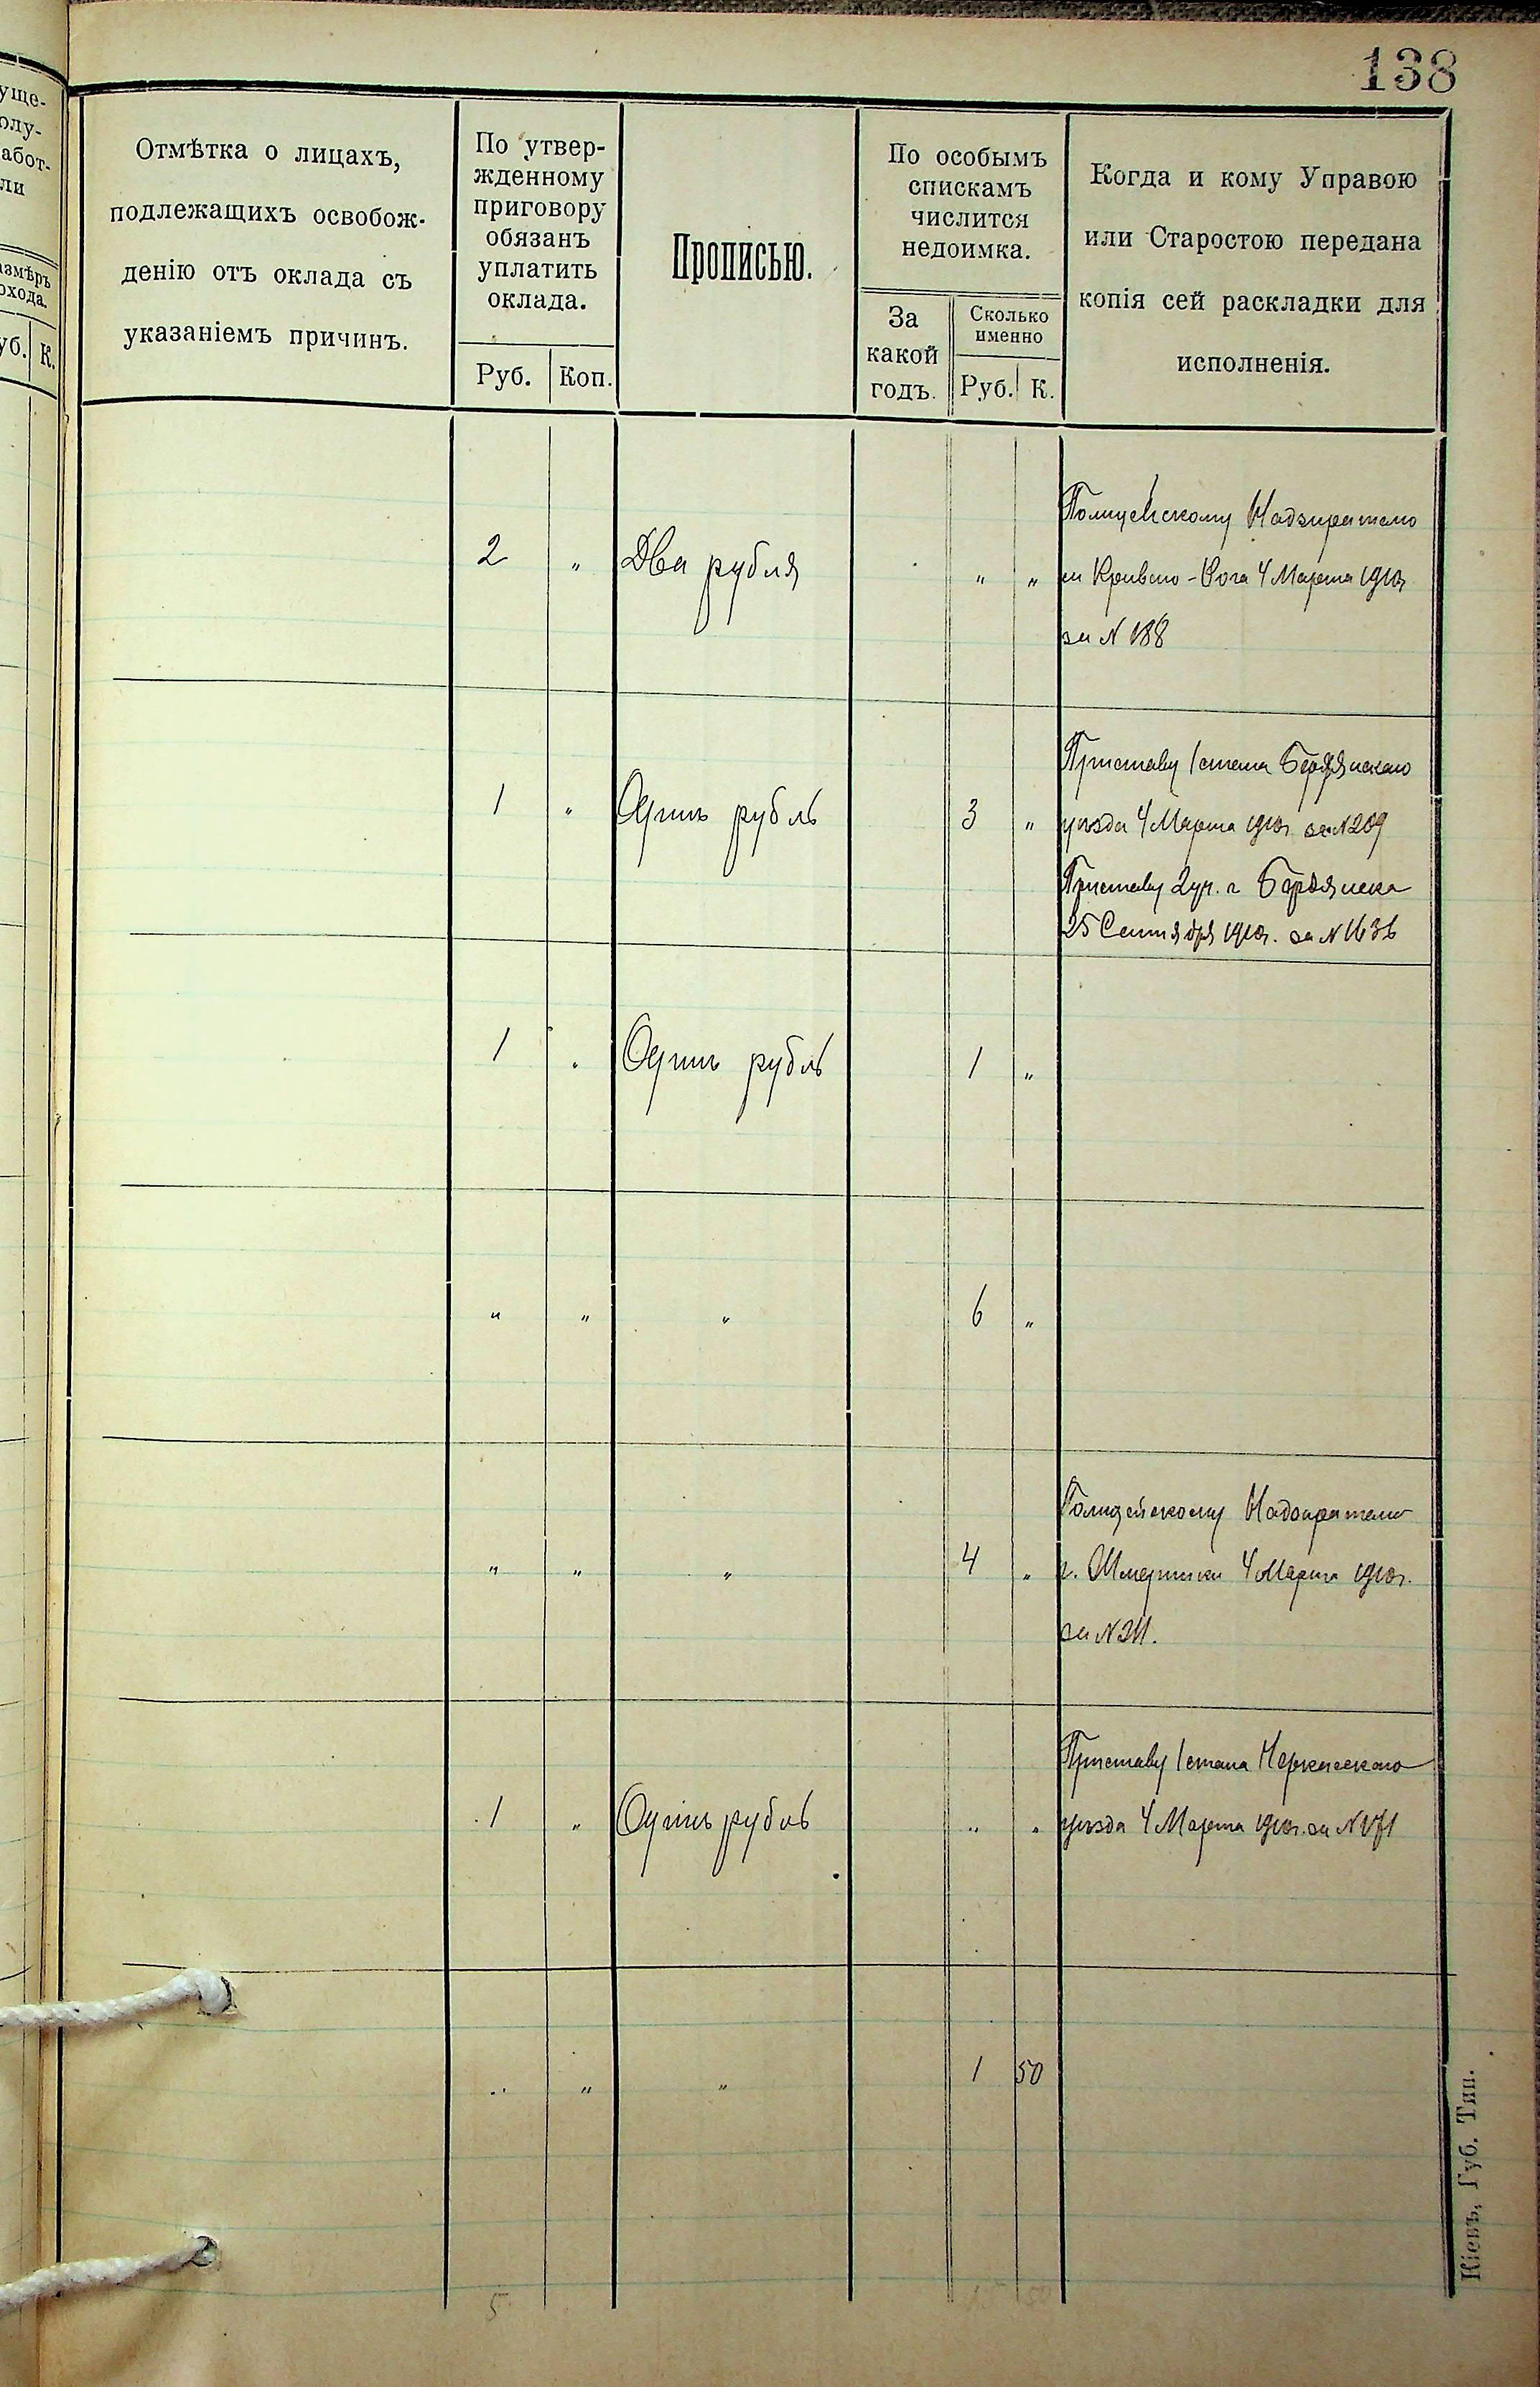 138
уще-
олу-
абот-
ли
азмѣръ
охода.
уб. К.
Отмѣтка о лицахъ,
подлежащихъ освобож-
денію отъ оклада съ
указаніемъ причинъ.
По утвер-
жденному
приговору
обязанъ
уплатить
оклада.
Руб. Коп.
Прописью.
По особымъ
спискамъ
числится
недоимка.
За
какой
годъ.
Сколько
именно
Руб. К.
Когда и кому Управою
или Старостою передана
копія сей раскладки для
исполненія.
Полицейскому Надзирателю
2 " Два рубля " " м Кривого-Рога 4 Марта 1910г
за N 188
Приставу 1 стана Бердянскаго
1 " Одинъ рубль 3 " уѣзда 4 Марта 1910г за N 209
Приставу 2 уч. г Бердянска
25 Сентября 1910г. за N 1636
1 " Одинъ рубль 1 "
" " " 6 "
Полицейскому Надзирателю
" " " 4 " г. Жмеринки 4 Марта 1910г.
за N 211.
Приставу 1 стана Черкасскаго
1 " Одинъ рубль " " уѣзда 4 Марта 1910г. за N 171
" " " 1 50
5
Кіевъ, Губ. Тип.